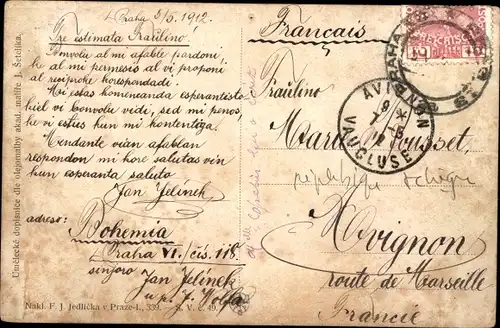 Praha 5/5. 1912.
Tre estimata Fraŭlino.
Bonvolu al mi afable pardoni,
ke al mi permesis al vi proponi
al reciproke korespondadi.
Mi estas komencanda esperantisto
kiel vi bonvolu vidi, sed mi penos,
ke vi estus kun mi kontentiga.
Atendante vian afablan
respondon mi kore salutas vin
kun esperanta saluto
Jan Jelínek
adreso:
Bohemia
Praha VI./čís. 118.
senjoro
Jan Jelínek
u p. J. Wolfa
Nakl. F. J. Jedlička v Praze-I., 339. S. V. č. 49.
Umělecké dopisnice dle olejomalby akad. malíře J. Šetelíka.
Français
Fraŭlino
Marie Housset
Avignon
route de Marseille
Francie
PRAHA
AVIGNON
VAUCLUSE
10 10